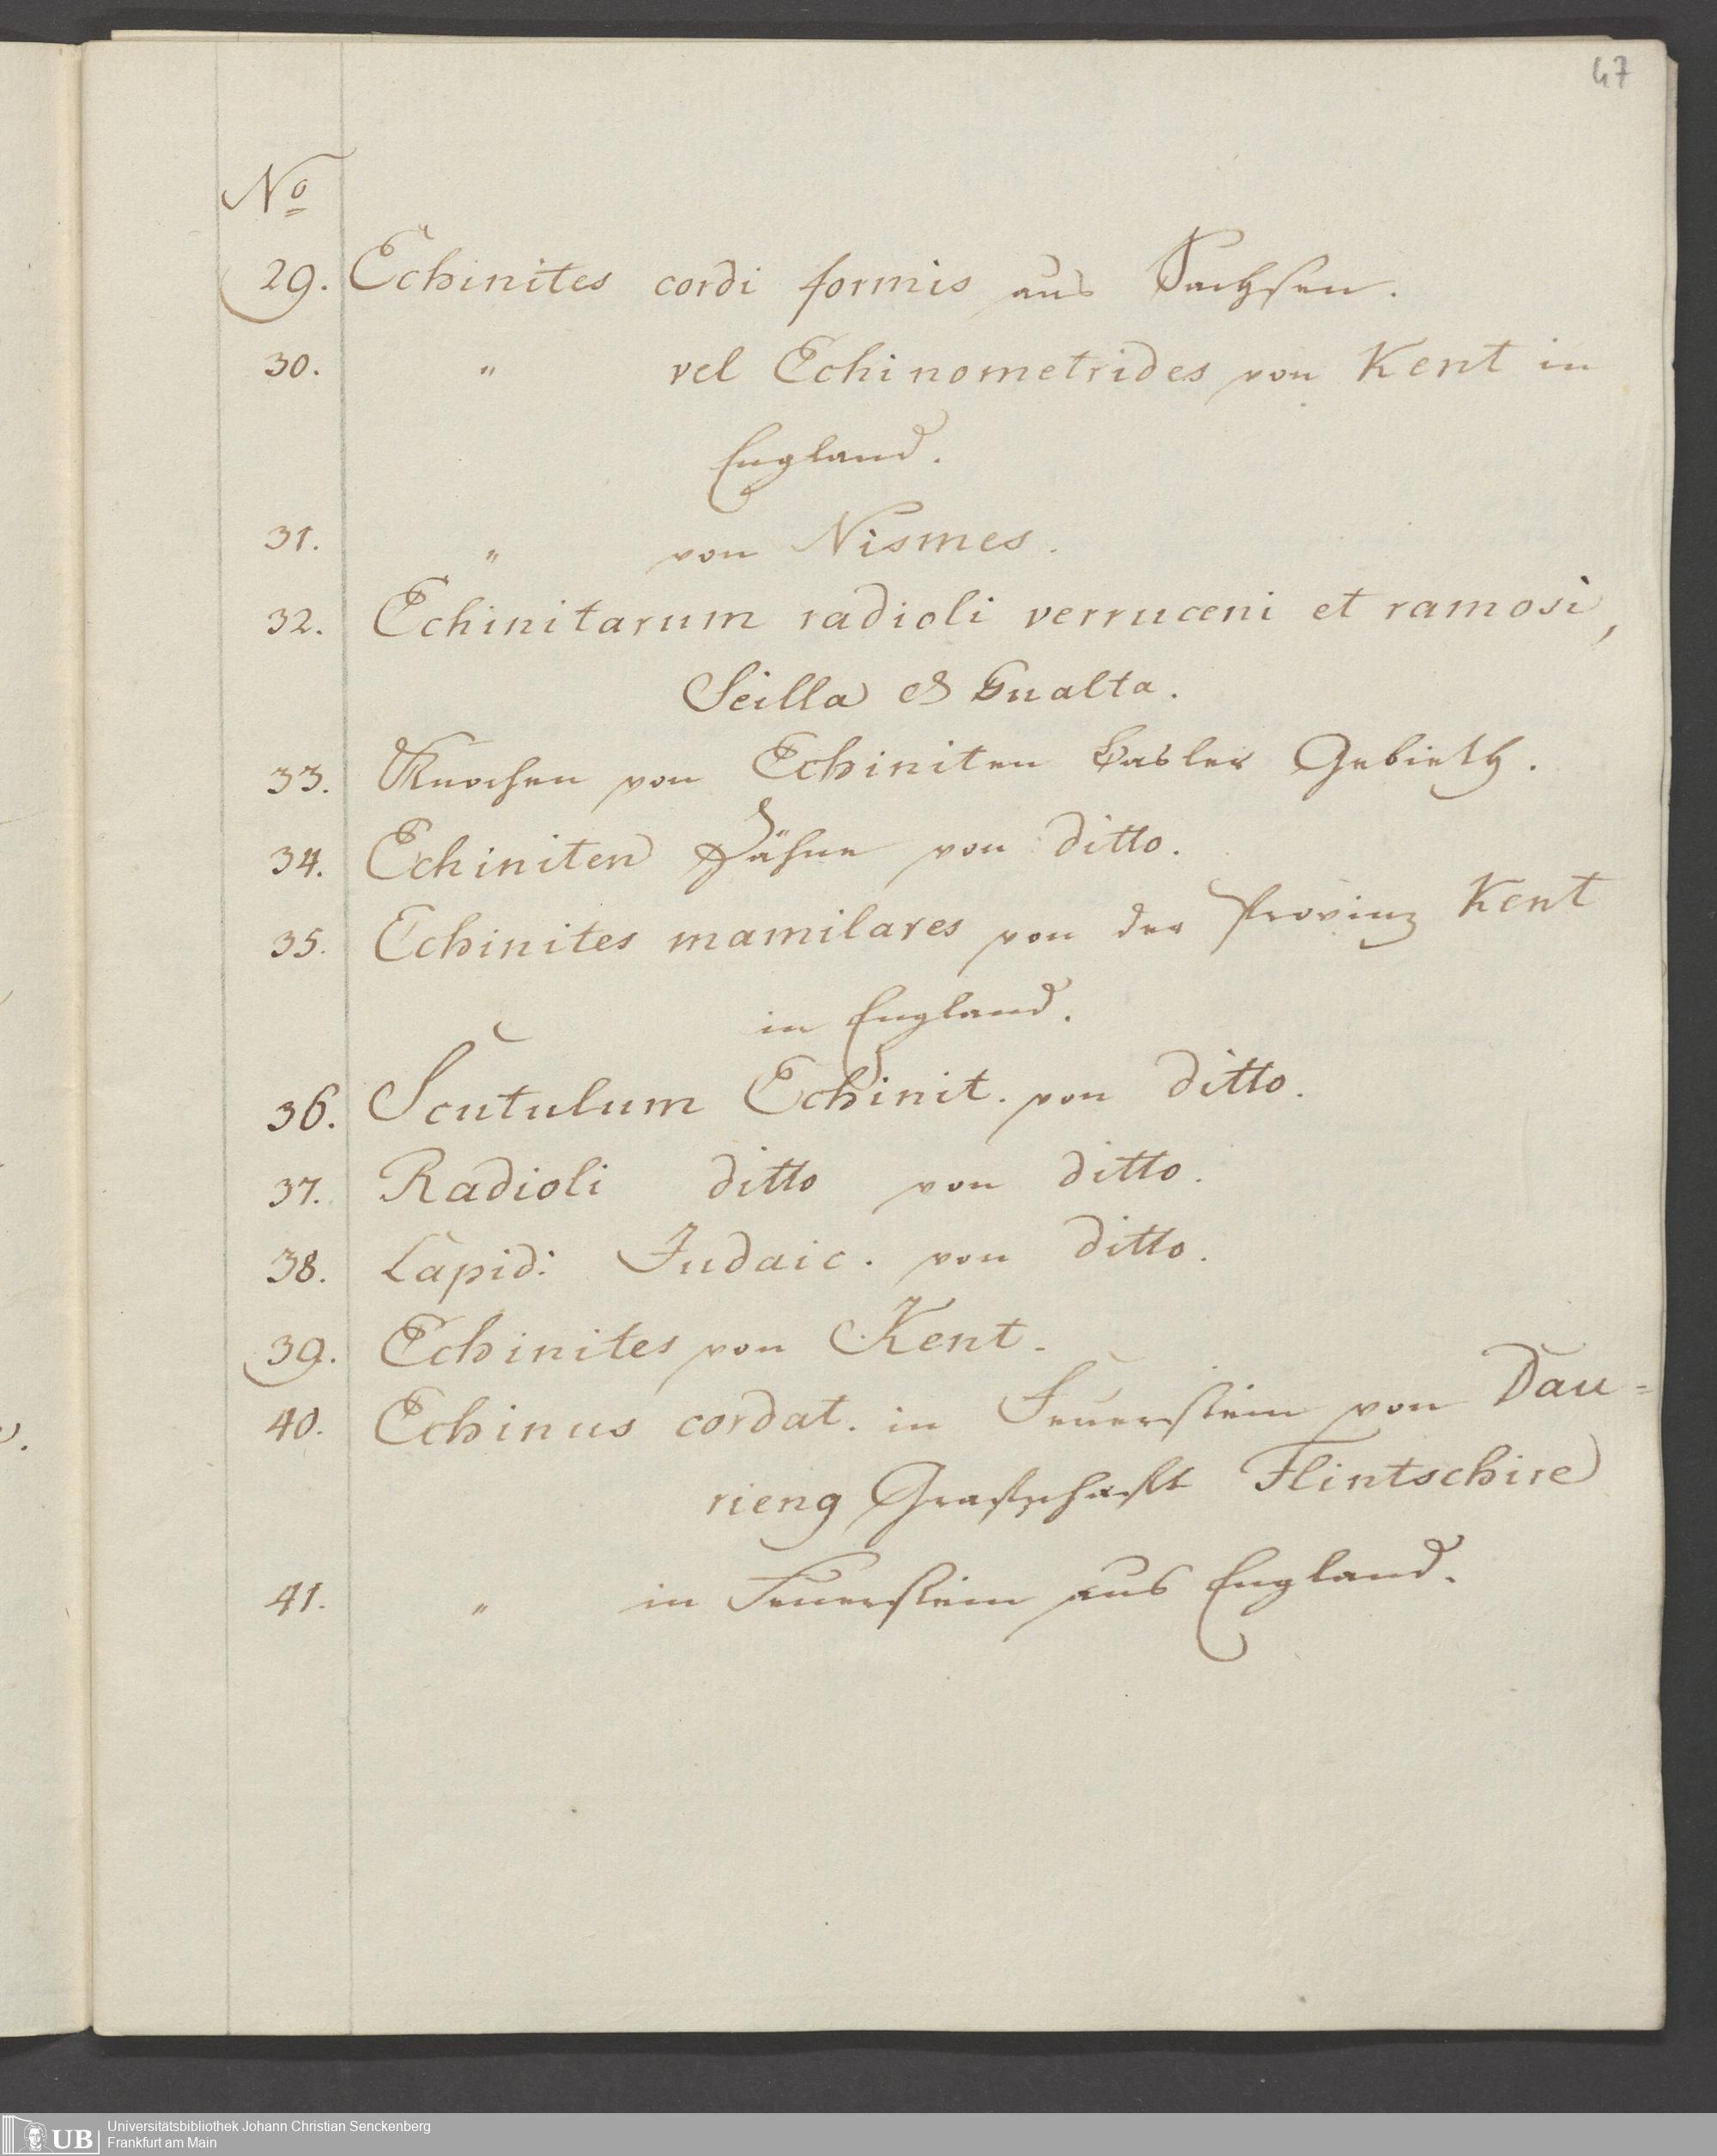 47
No
29. Echinites cordi formis aus Sachsen.
30. " vel Echinometrides von Kent in
England.
31. " von Nismes.
32. Echinitarum radioli verruceni et ramosi,
Scilla & Gualta.
33. Knochen von Echiniten Basler Gebieth.
34. Echiniten Zähne von ditto.
35. Echinites mamilares von der Provinz Kent
in England.
36. Scutulum Echinit. von ditto.
37. Radioli ditto von ditto.
38. Lapid: Judaic. von ditto.
39. Echinites von Kent.
40. Echinus cordat. in Feuerstein von Dau=
rieng Grafschaft Flintschire
41. " in Feuerstein aus England.
UB Universitätsbibliothek Johann Christian Senckenberg
Frankfurt am Main